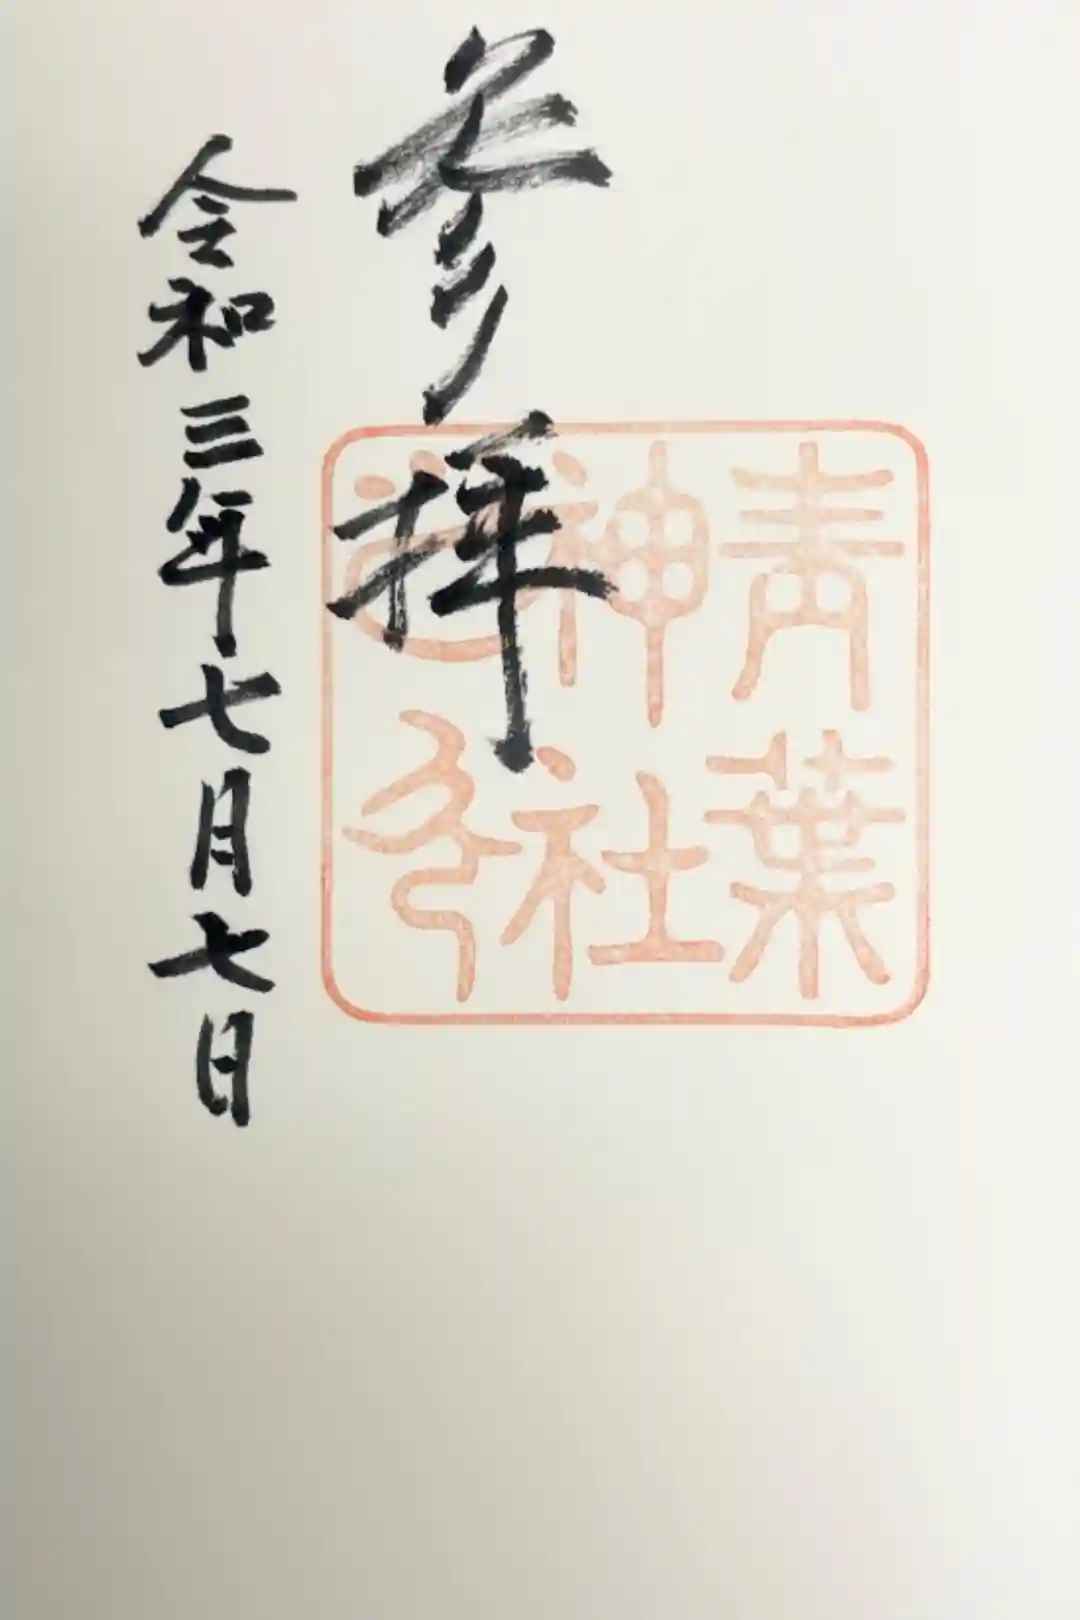 参拝
青葉
神社
令和三年七月七日